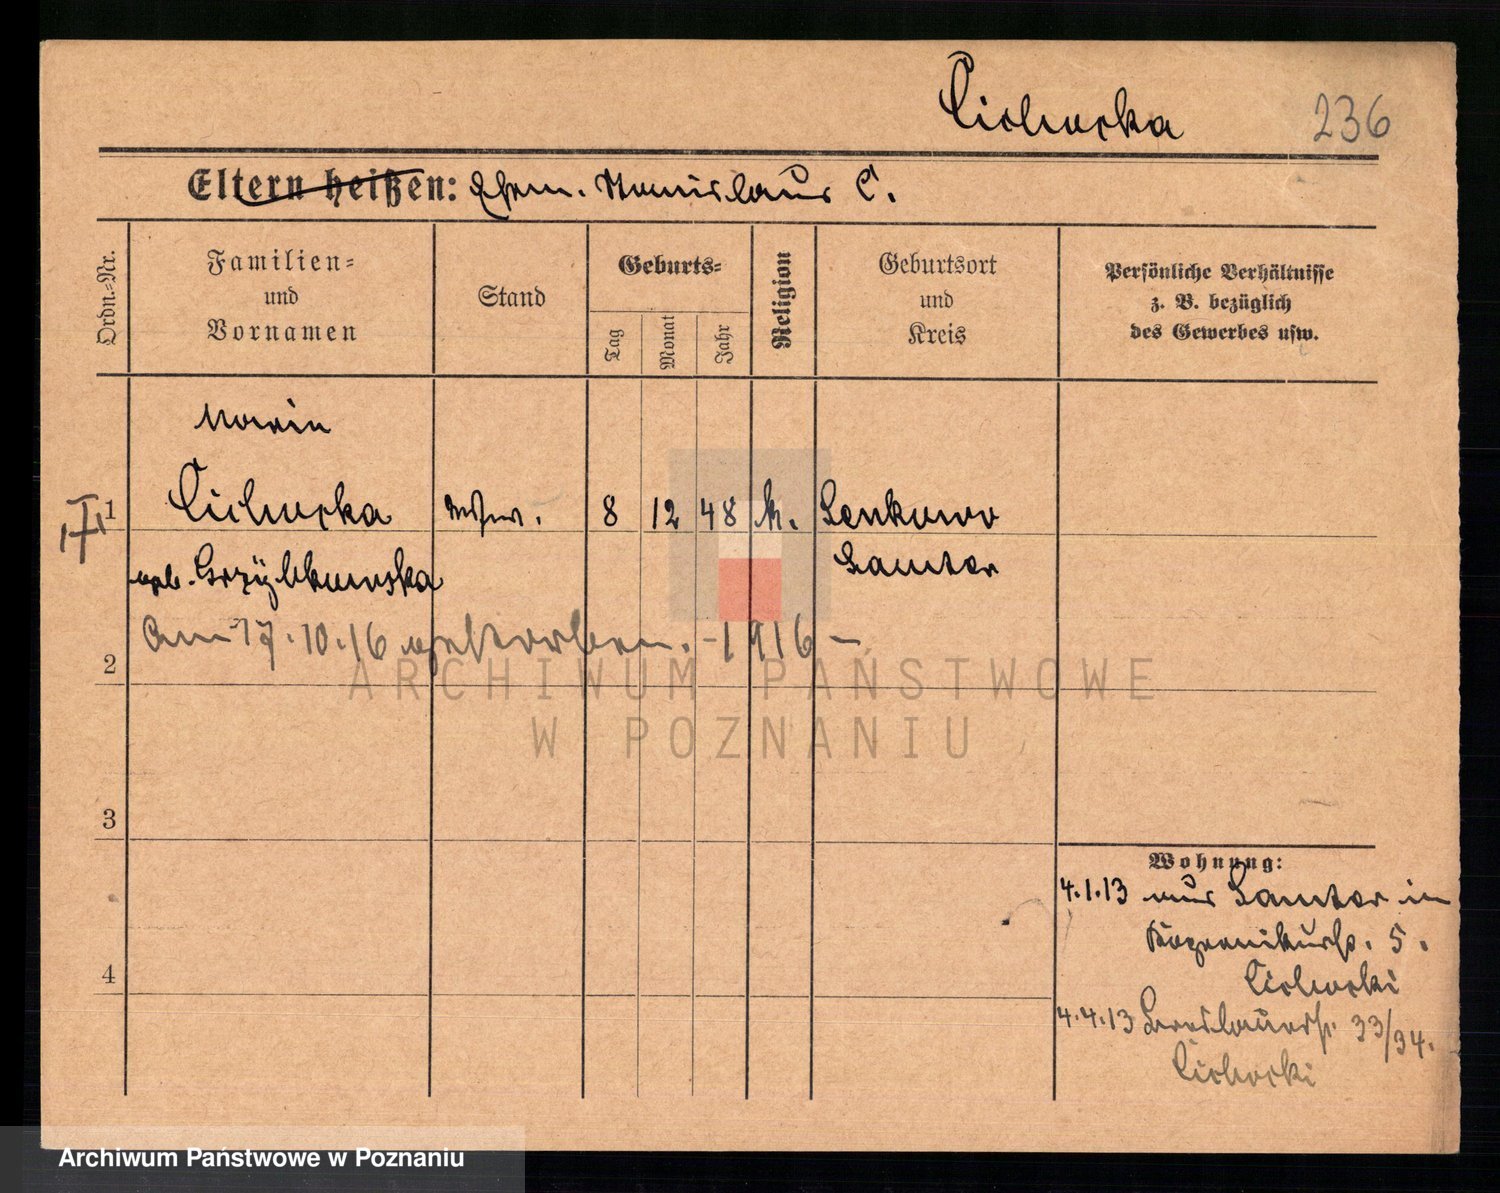 Cichocka 236
Eltern heißen: Ehem. Stanislaus C.
Ordn.-Nr.
Familien-
und
Vornamen
Stand
Geburts-
Tag
Monat
Jahr
Religion
Geburtsort
und
Kreis
Persönliche Verhältnisse
z. B. bezüglich
des Gewerbes usw.
Marie
1 Cichocka 8 12 48 k. Senkowo
geb. Grzybkowska Samter
am 17.10.16 gestorben. - 1916 -
2
3
4
Wohnung:
4.1.13 aus Samter in
Kopernikusstr. 5.
Cichocki
4.4.13 Breslauerstr. 33/34.
Cichocki
ARCHIWUM PAŃSTWOWE
W POZNANIU
Archiwum Państwowe w Poznaniu